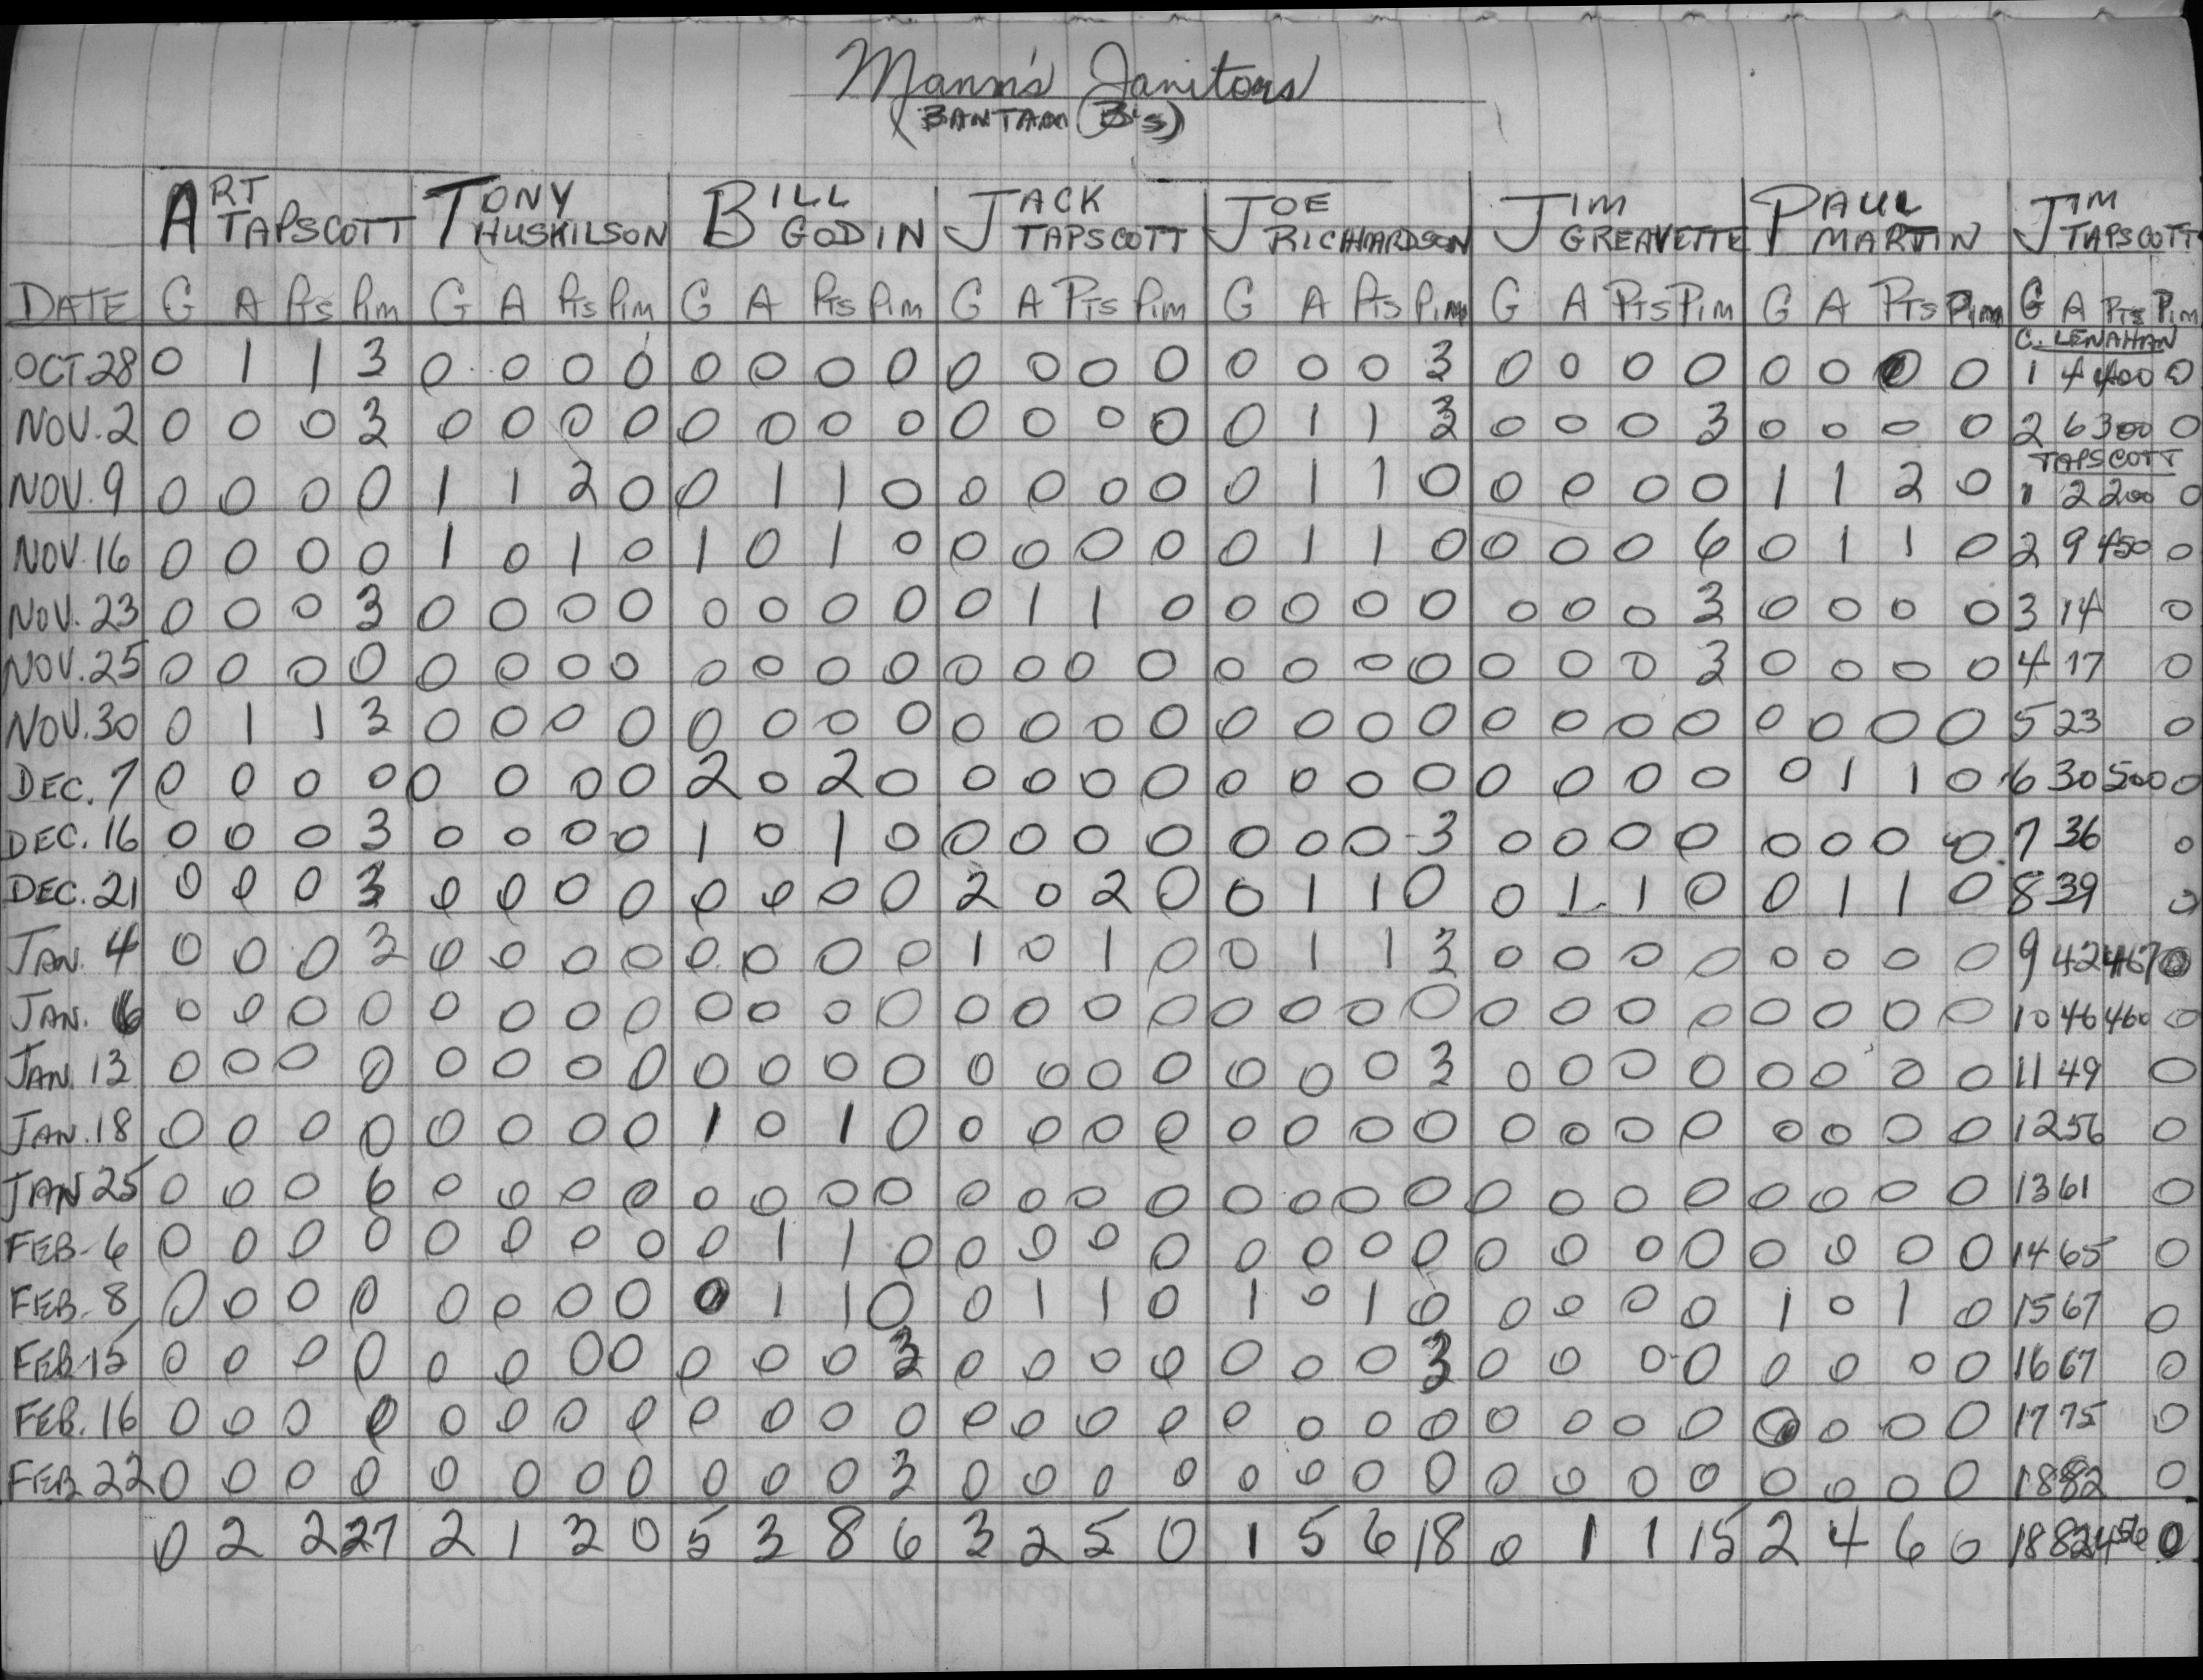 Mann's Janitors
(BANTAM B's)
ART TAPSCOTT TONY HUSKILSON BILL GODIN JACK TAPSCOTT JOE RICHARDSON JIM GREAVETTE PAUL MARTIN JIM TAPSCOTT
DATE G A Pts Pim G A Pts Pim G A Pts Pim G A PTS Pim G A Pts Pim G A PTS Pim G A PTS Pim G A PTS Pim
C. LENAHAN
OCT 28 0 1 1 3 0 0 0 0 0 0 0 0 0 0 0 0 0 0 0 3 0 0 0 0 0 0 0 0 1 4 400 0
NOV. 2 0 0 0 3 0 0 0 0 0 0 0 0 0 0 0 0 0 1 1 3 0 0 0 3 0 0 0 0 2 6 300 0
TAPSCOTT
NOV. 9 0 0 0 0 1 1 2 0 0 1 1 0 0 0 0 0 0 1 1 0 0 0 0 0 1 1 2 0 1 2 200 0
NOV. 16 0 0 0 0 1 0 1 0 1 0 1 0 0 0 0 0 0 1 1 0 0 0 0 6 0 1 1 0 2 9 450 0
NOV. 23 0 0 0 3 0 0 0 0 0 0 0 0 0 1 1 0 0 0 0 0 0 0 0 3 0 0 0 0 3 14 0
NOV. 25 0 0 0 0 0 0 0 0 0 0 0 0 0 0 0 0 0 0 0 0 0 0 0 3 0 0 0 0 4 17 0
NOV. 30 0 1 1 3 0 0 0 0 0 0 0 0 0 0 0 0 0 0 0 0 0 0 0 0 0 0 0 0 5 23 0
DEC. 7 0 0 0 0 0 0 0 0 2 0 2 0 0 0 0 0 0 0 0 0 0 0 0 0 0 1 1 0 6 30 500 0
DEC. 16 0 0 0 3 0 0 0 0 1 0 1 0 0 0 0 0 0 0 0 3 0 0 0 0 0 0 0 0 7 36 0
DEC. 21 0 0 0 3 0 0 0 0 0 0 0 0 2 0 2 0 0 1 1 0 0 1 1 0 0 1 1 0 8 39 0
JAN. 4 0 0 0 3 0 0 0 0 0 0 0 0 1 0 1 0 0 1 1 3 0 0 0 0 0 0 0 0 9 42 467 0
JAN. 6 0 0 0 0 0 0 0 0 0 0 0 0 0 0 0 0 0 0 0 0 0 0 0 0 0 0 0 0 10 46 460 0
JAN. 13 0 0 0 0 0 0 0 0 0 0 0 0 0 0 0 0 0 0 0 3 0 0 0 0 0 0 0 0 11 49 0
JAN. 18 0 0 0 0 0 0 0 0 1 0 1 0 0 0 0 0 0 0 0 0 0 0 0 0 0 0 0 0 12 56 0
JAN 25 0 0 0 6 0 0 0 0 0 0 0 0 0 0 0 0 0 0 0 0 0 0 0 0 0 0 0 0 13 61 0
FEB. 6 0 0 0 0 0 0 0 0 0 1 1 0 0 0 0 0 0 0 0 0 0 0 0 0 0 0 0 0 14 65 0
FEB. 8 0 0 0 0 0 0 0 0 0 1 1 0 0 1 1 0 1 0 1 0 0 0 0 0 1 0 1 0 15 67 0
FEB. 15 0 0 0 0 0 0 0 0 0 0 0 3 0 0 0 0 0 0 0 3 0 0 0 0 0 0 0 0 16 67 0
FEB. 16 0 0 0 0 0 0 0 0 0 0 0 0 0 0 0 0 0 0 0 0 0 0 0 0 0 0 0 0 17 75 0
FEB. 22 0 0 0 0 0 0 0 0 0 0 0 3 0 0 0 0 0 0 0 0 0 0 0 0 0 0 0 0 18 82 0
0 2 2 27 2 1 3 0 5 3 8 6 3 2 5 0 1 5 6 18 0 1 1 15 2 4 6 0 18 82 456 0